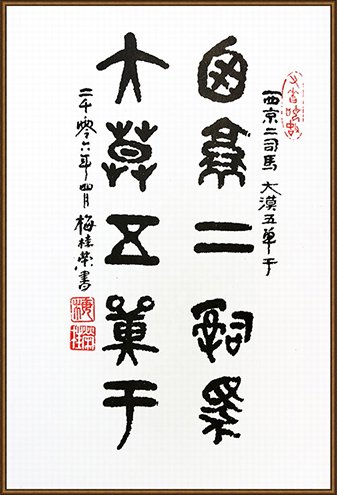 西京二司馬 大漠五單于
西京二司馬
大莫五單于
二千零六年四月梅桂荣書